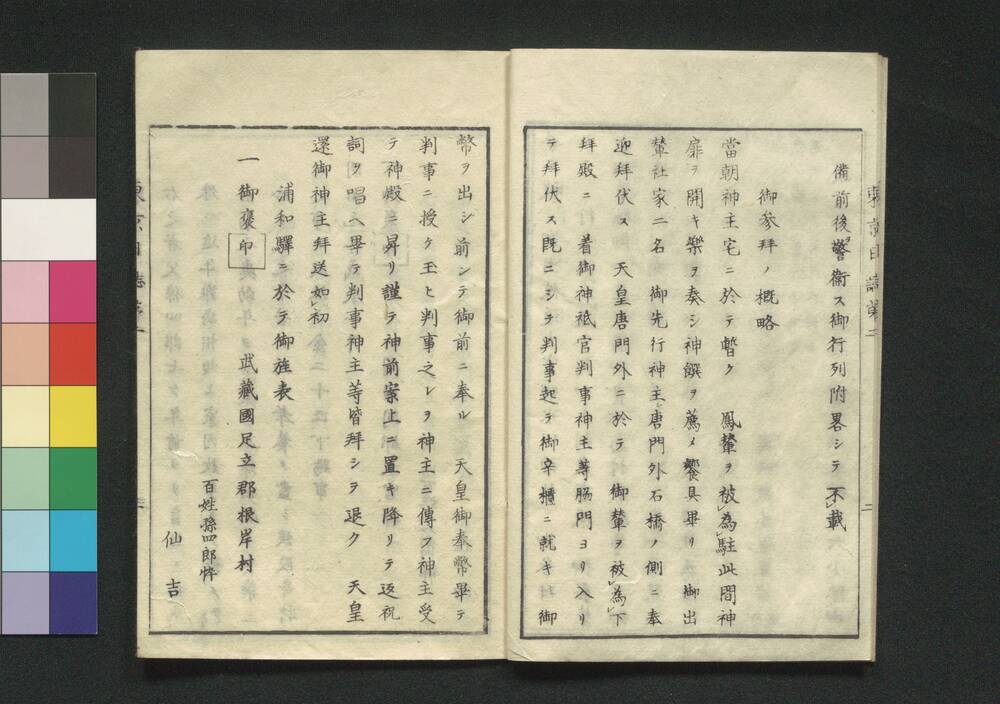 備前後警衛ス御行列附畧シテ不レ載
御參拜ノ概略
當朝神主宅ニ於テ暫ク　鳳輦ヲ被レ為レ駐此間神
扉ヲ開キ樂ヲ奏シ神饌ヲ薦メ饗具畢リ　御出
輦社家二名　御先行神主唐門外石橋ノ側ニ奉
迎拜伏ス　天皇唐門外ニ於テ　御輦ヲ被レ為レ下
拜殿ニ　着御神祇官判事神主等脇門ヨリ入リ
テ拜伏ス既ニシテ判事起テ御辛櫃ニ就キ　御
幣ヲ出シ前ンテ御前ニ奉ル　天皇御奉幣畢テ
判事ニ授ケ玉ヒ判事之レヲ神主ニ傳フ神主受
テ神殿ニ昇リ謹テ神前案上ニ置キ降リテ返祝
詞ヲ唱ヘ畢テ判事神主等皆拜シテ退ク　天皇
還御神主拜送如レ初
浦和驛ニ於テ御旌表
一　御褒印　武藏國足立郡根岸村
百姓孫四郎悴
仙吉